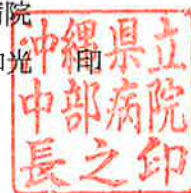 病院
和光 印
沖縄県立
中部病院
長之印